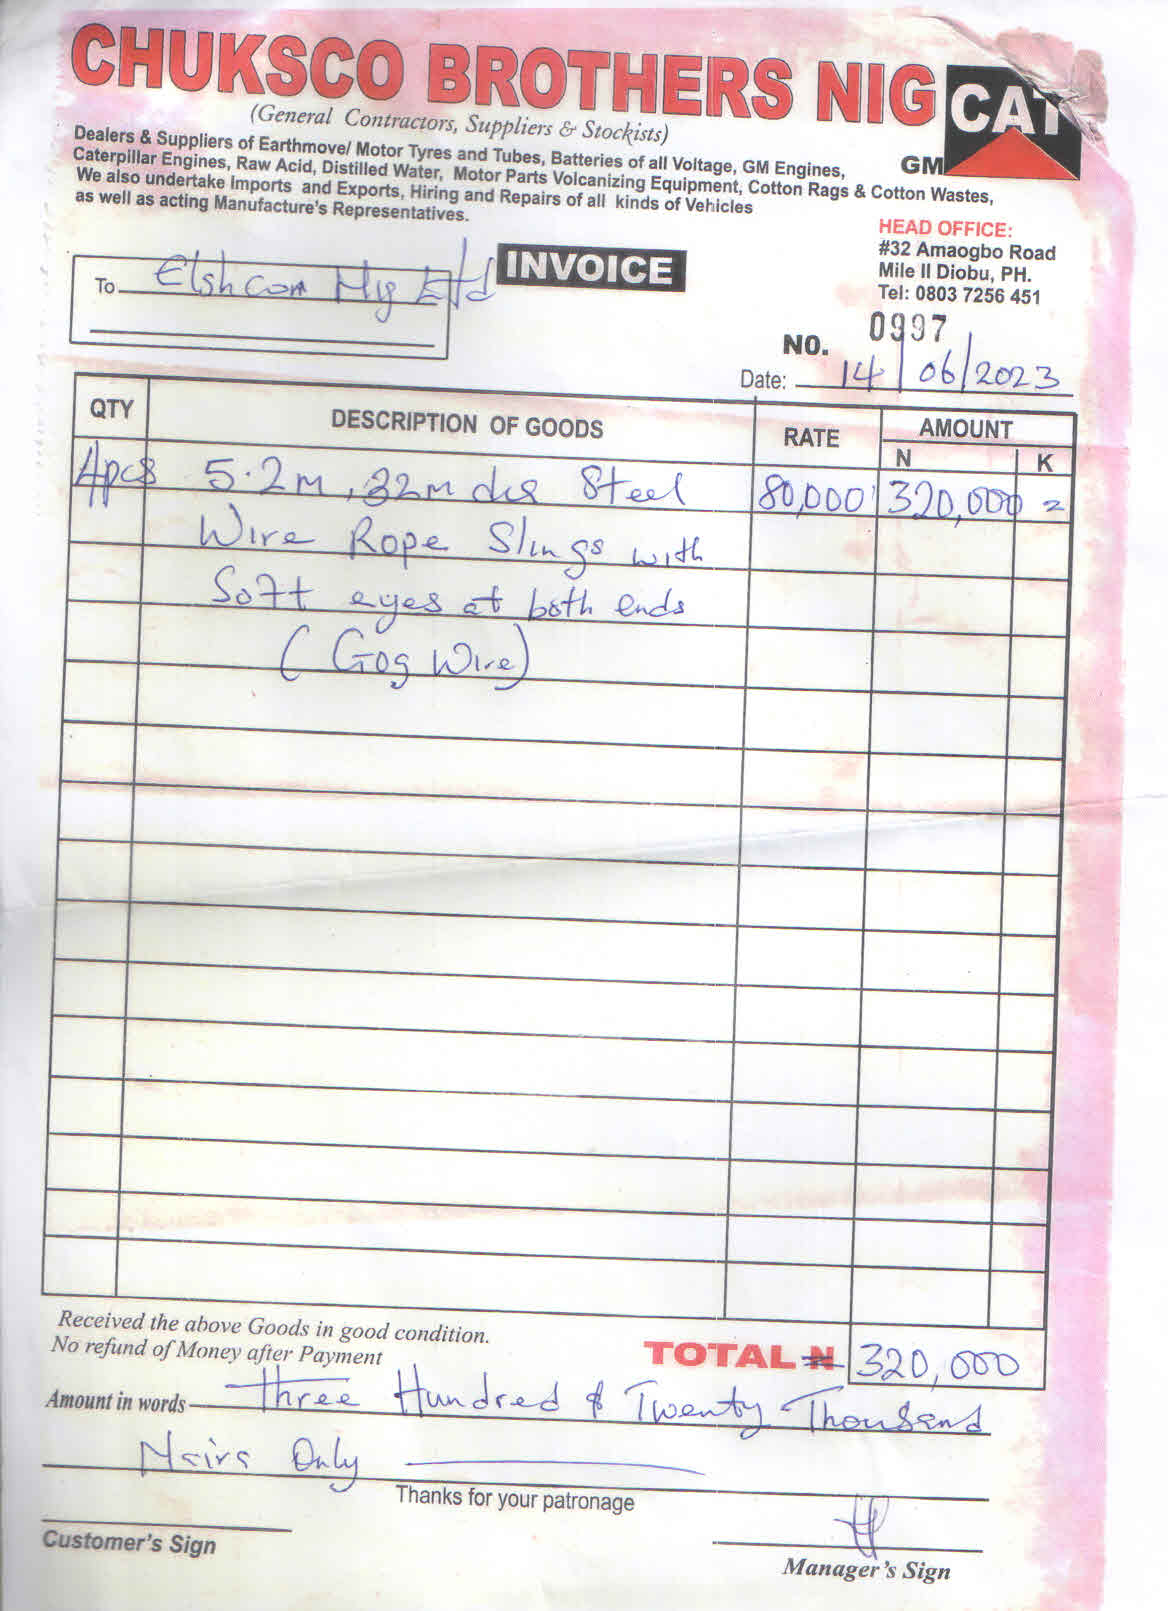 CHUKSCO BROTHERS NIG
CAT
(General Contractors, Suppliers & Stockists)
GM
Dealers & Suppliers of Earthmove/ Motor Tyres and Tubes, Batteries of all Voltage, GM Engines,
Caterpillar Engines, Raw Acid, Distilled Water, Motor Parts Volcanizing Equipment, Cotton Rags & Cotton Wastes,
We also undertake Imports and Exports, Hiring and Repairs of all kinds of Vehicles
as well as acting Manufacture's Representatives.
HEAD OFFICE:
#32 Amaogbo Road
Mile II Diobu, PH.
Tel: 0803 7256 451
INVOICE
To Elshcon Nig Ltd
NO. 0997
Date: 14/06/2023
QTY DESCRIPTION OF GOODS RATE AMOUNT
N K
4pcs 5.2m, 32m dia Steel 80,000 320,000 =
Wire Rope Slings with
Soft eyes at both ends
(Gog Wire)
Received the above Goods in good condition.
No refund of Money after Payment
TOTAL ₦ 320,000
Amount in words Three Hundred & Twenty Thousand
Naira Only
Thanks for your patronage
Customer's Sign
Manager's Sign